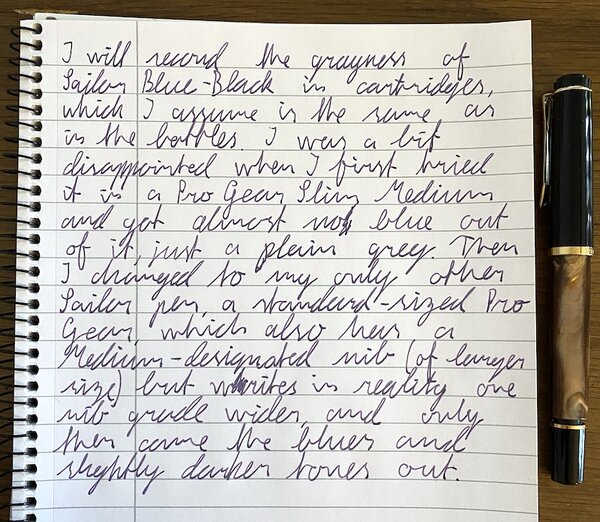 I will record the grayness of
Sailor Blue-Black in cartridges,
which I assume is the same as
in the bottles. I was a bit
disappointed when I first tried
it in a Pro Gear Slim Medium
and got almost no blue out
of it, just a plain grey. Then
I changed to my only other
Sailor pen, a standard-sized Pro
Gear, which also has a
Medium-designated nib (of larger
size) but writes in reality one
nib grade wider, and only
then came the blues and
slightly darker tones out.